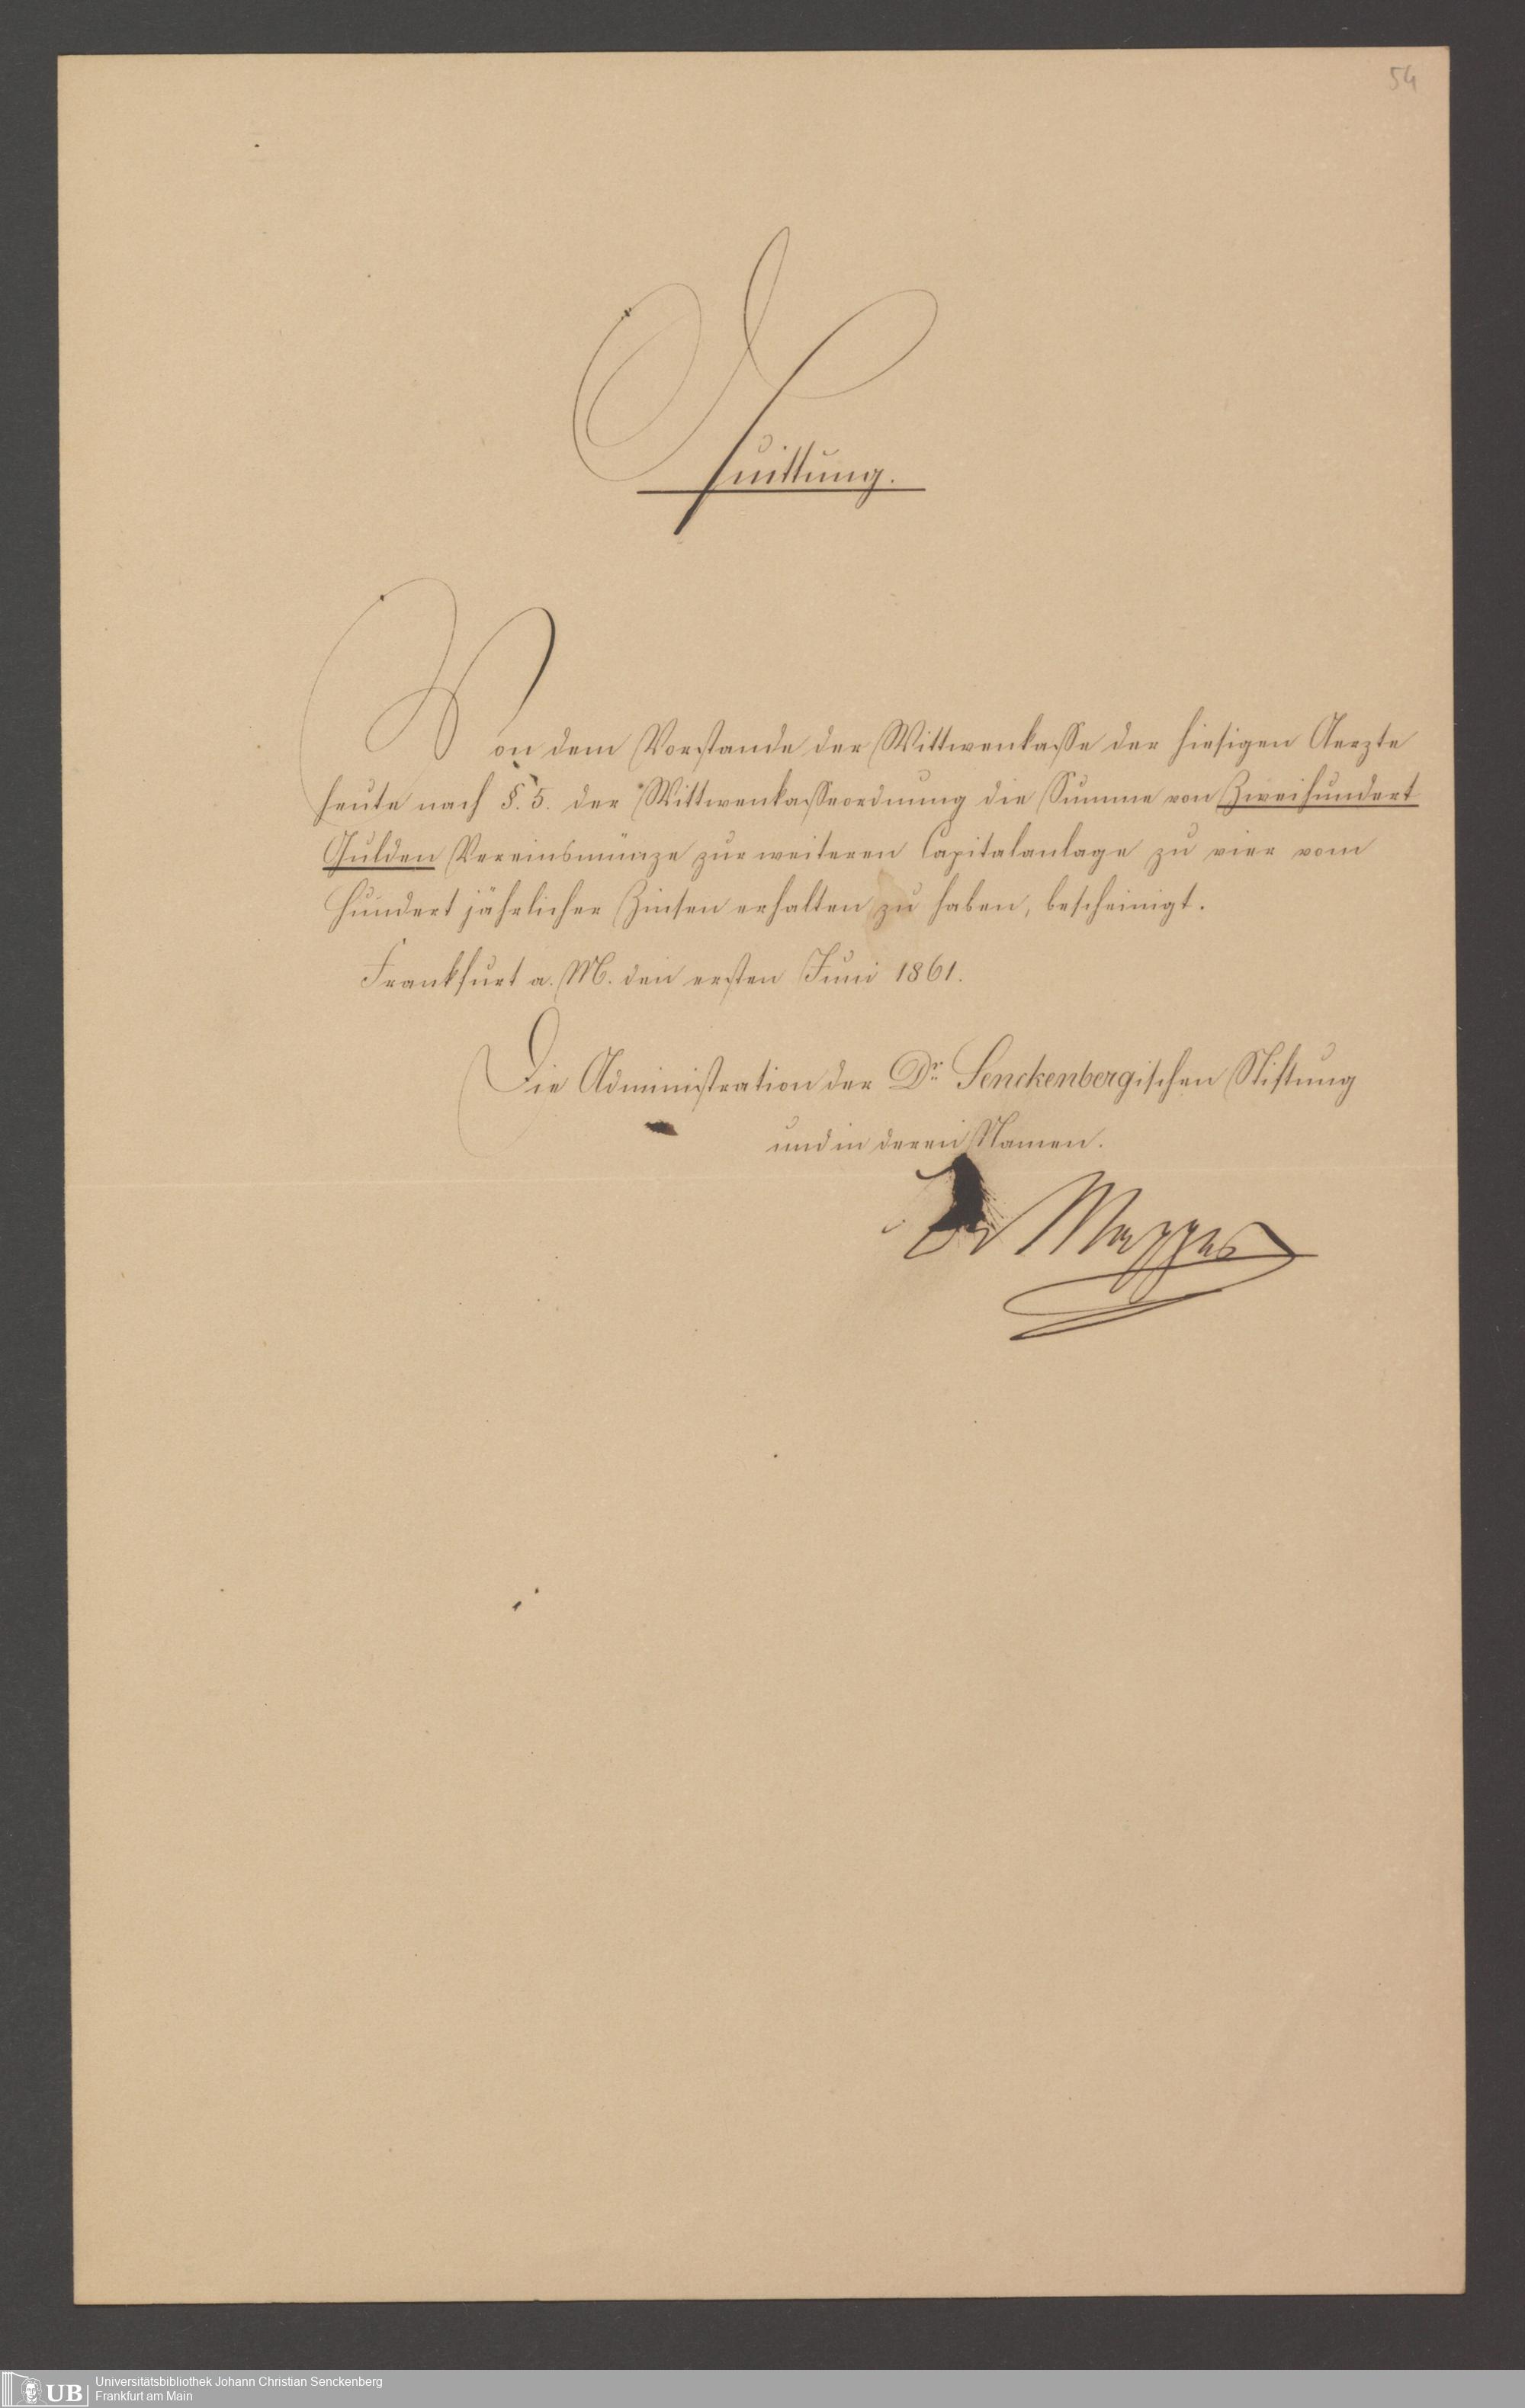 54
Quittung.
Von dem Vorstande der Wittwenkasse der hiesigen Aerzte
heute nach §. 5. der Wittwenkasseordnung die Summe von Zweihundert
Gulden Vereinsmünze zur weiteren Capitalanlage zu vier vom
Hundert jährlicher Zinsen erhalten zu haben, bescheinigt.
Frankfurt a. M. den ersten Juni 1861.
Die Administration der Dr. Senckenbergischen Stiftung
und in deren Namen.
Dr
UB Universitätsbibliothek Johann Christian Senckenberg
Frankfurt am Main